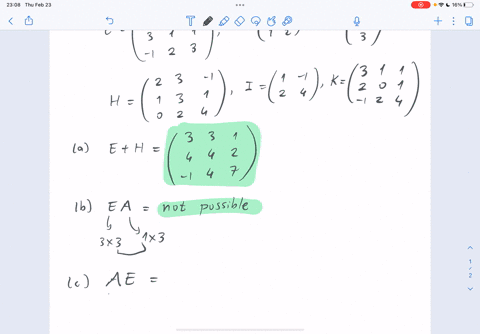 23:08 Thu Feb 23
16%
3 1 1
-1 2 3 , 1 2 3
H = ( 2 3 -1 1 3 1 0 2 4 ) , I = ( 1 -1 2 4 ) , K = ( 3 1 1 2 0 1 -1 2 4 )
(a) E + H = ( 3 3 1 4 4 2 -1 4 7 )
(b) EA = not possible
3×3 1×3
(c) AE =
1
/
2